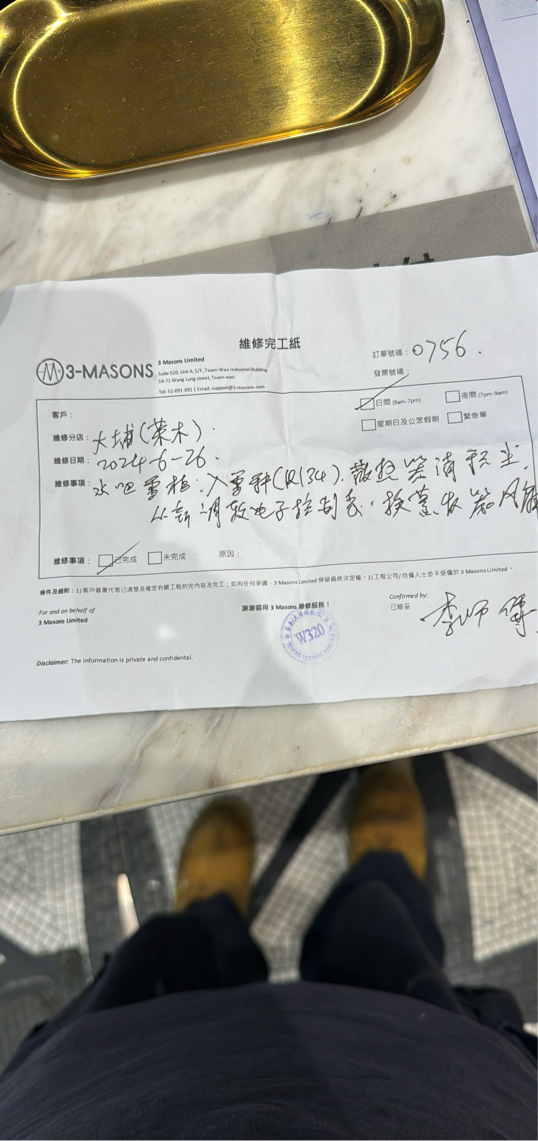 維修完工紙
3-MASONS
3 Masons Limited
Suite 520, Unit A, 5/F, Tsuen Wan Industrial Building
59-71 Wang Lung street, Tsuen wan
Tel: 51-891-091 | Email: support@3-masons.com
訂單號碼：0756.
發票號碼：
客戶：
日間 (9am-7pm)
夜間 (7pm-9am)
星期日及公眾假期
緊急單
維修分店：大埔(茶木).
維修日期：2024-6-26.
維修事項：水吧雪柜：入雪种(R134).散热器清积尘.
从新调較电子控制表.换蒸发器风扇
維修事項：
已完成
未完成
原因：
條件及細則：1) 客戶簽署代表已清楚及確定有關工程的完內容及完工；如有任何爭議，3 Masons Limited 保留最終決定權。2) 工程公司/自僱人士並不受僱於 3 Masons Limited。
For and on behalf of
3 Masons Limited
謝謝選用 3 Masons 維修服務！
W320
Confirmed by:
已修妥
李师傅
Disclaimer: The information is private and confidential.